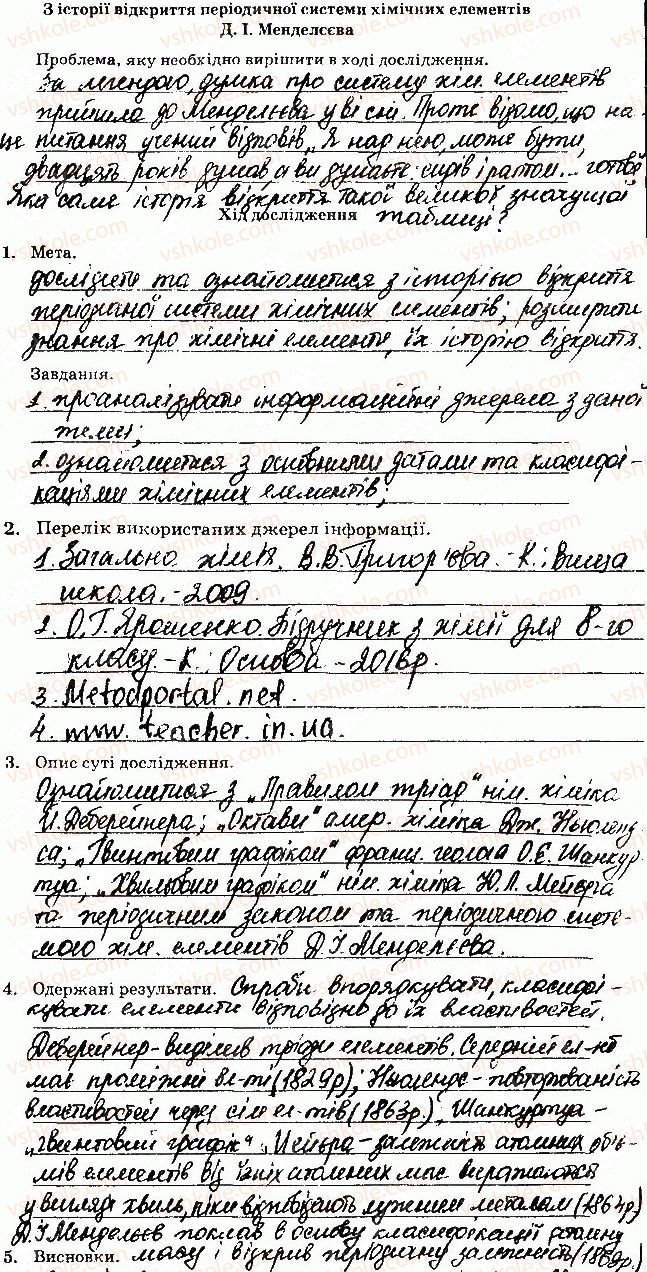 З історії відкриття періодичної системи хімічних елементів
Д. І. Менделєєва
Проблема, яку необхідно вирішити в ході дослідження.
За легендою, думка про систему хім. елементів
прийшла до Мендельєва у ві сні. Проте відомо, що на
це питання учений відповів „Я над нею, може бути,
двадцять років думав, а ви думаєте: сидів і ратом... готово
Яка саме історія відкриття такої великої значущої
Хід дослідження таблиці?
1. Мета.
дослідити та ознайомитися з історією відкриття
періодичної системи хімічних елементів; розширити
знання про хімічні елементи, їх історію відкриття.
Завдання.
1. проаналізувати інформаційні джерела з даної
теми;
2. ознайомитися з основними датами та класифі-
каціями хімічних елементів;
2. Перелік використаних джерел інформації.
1. Загально хімія. В.В. Григор'єва. - К.: Вища
школа. - 2009.
2. О.Г. Ярошенко. Підручник з хімії для 8-го
класу. - К: Основа - 2016р.
3. Metodportal.net.
4. www.teacher.in.ua.
3. Опис суті дослідження.
Ознайомитися з „Правилом тріад" нім. хіміка
Й. Деберейнера; „Октави" амер. хіміка Дж. Ньюленд
са; „Гвинтовим графіком" франц. геолога О.Є. Шанкур
туа; „Хвильовим графіком" нім. хіміка Ю.Л. Мейєра
та періодичним законом та періодичною систе-
мою хім. елементів Д.І. Мендельєва.
4. Одержані результати. Спроби впорядкувати, класифі-
кувати елементи відповідно до їх властивостей.
Деберейнер - виділив тріади елементів. Середній ел-нт
має проміжні вл-ті (1829р); Ньюлендс - повторюваність
властивостей через сім ел-тів (1863р); Шанкуртуа -
„гвинтовий графік" Мейєра - залежність атомних об'є-
мів елементів від їхніх атомних мас виражаются
у вигляді хвиль, піки відповідають лужним металам (1864р)
Д.І. Мендельєв поклав в основу класифікації атомну
5. Висновки. масу і відкрив періодичну залежність (1869р.)